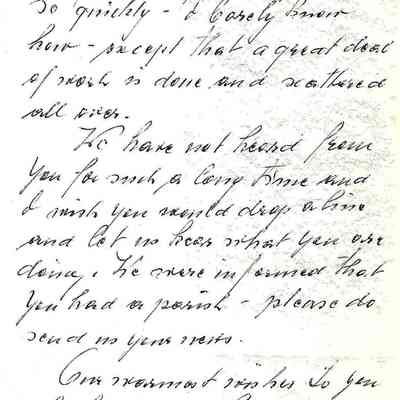 so quickly - I barely know
how - except that a great deal
of work is done and scattered
all over.
We have not heard from
you for such a long time and
I wish you would drop a line
and let us hear what you are
doing. We were informed that
you had a parish - please do
send us your news.
Our warmest wishes to you